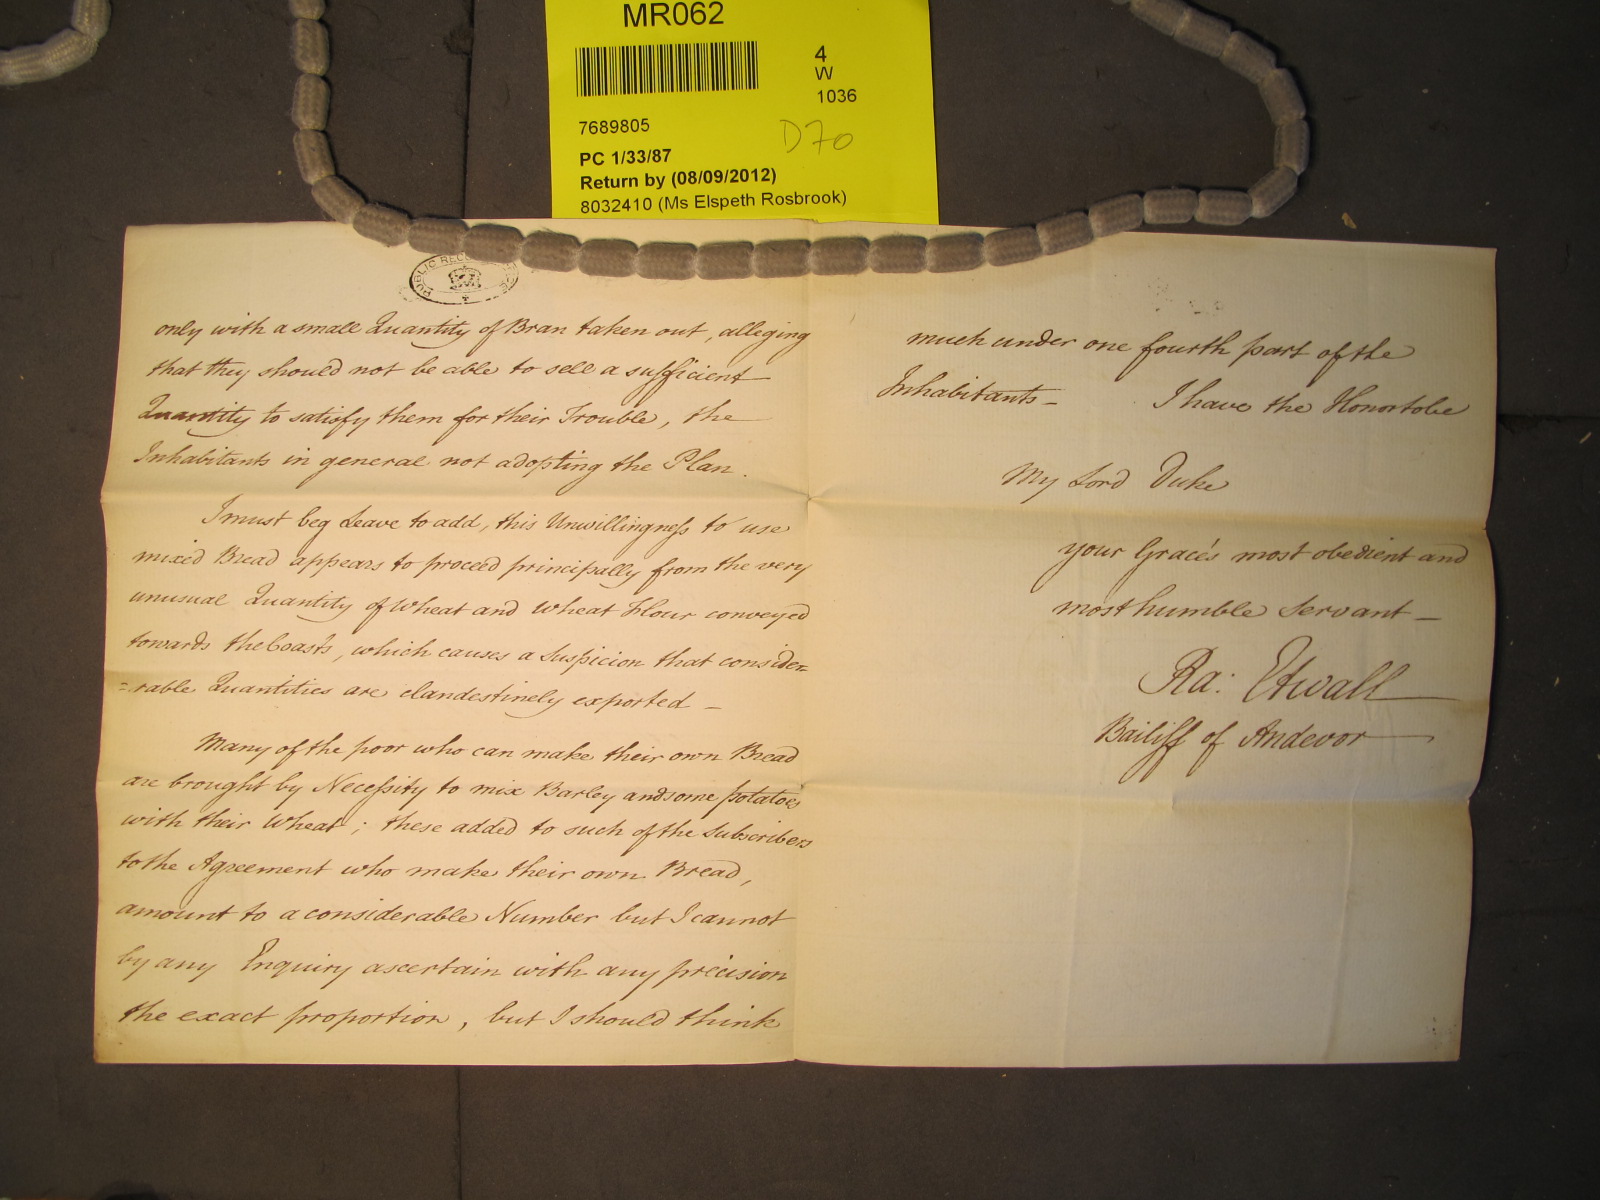 MR062
4
W
1036
7689805
D70
PC 1/33/87
Return by (08/09/2012)
8032410 (Ms Elspeth Rosbrook)
PUBLIC REC
only with a small Quantity of Bran taken out, alleging
that they should not be able to sell a sufficient
Quantity to satisfy them for their Trouble, the
Inhabitants in general not adopting the Plan.
I must beg Leave to add, this Unwillingness to use
mixed Bread appears to proceed principally from the very
unusual Quantity of Wheat and Wheat Flour conveyed
towards the Coasts, which causes a Suspicion that consider=
=rable Quantities are clandestinely exported —
Many of the poor who can make their own Bread
are brought by Necessity to mix Barley and some potatoes
with their Wheat; these added to such of the Subscribers
to the Agreement who make their own Bread,
amount to a considerable Number but I cannot
by any Enquiry ascertain with any precision
the exact proportion, but I should think
much under one fourth part of the
Inhabitants – I have the Honor to be
My Lord Duke
your Grace's most obedient and
most humble Servant —
Ra: Etwall
Bailiff of Andevor